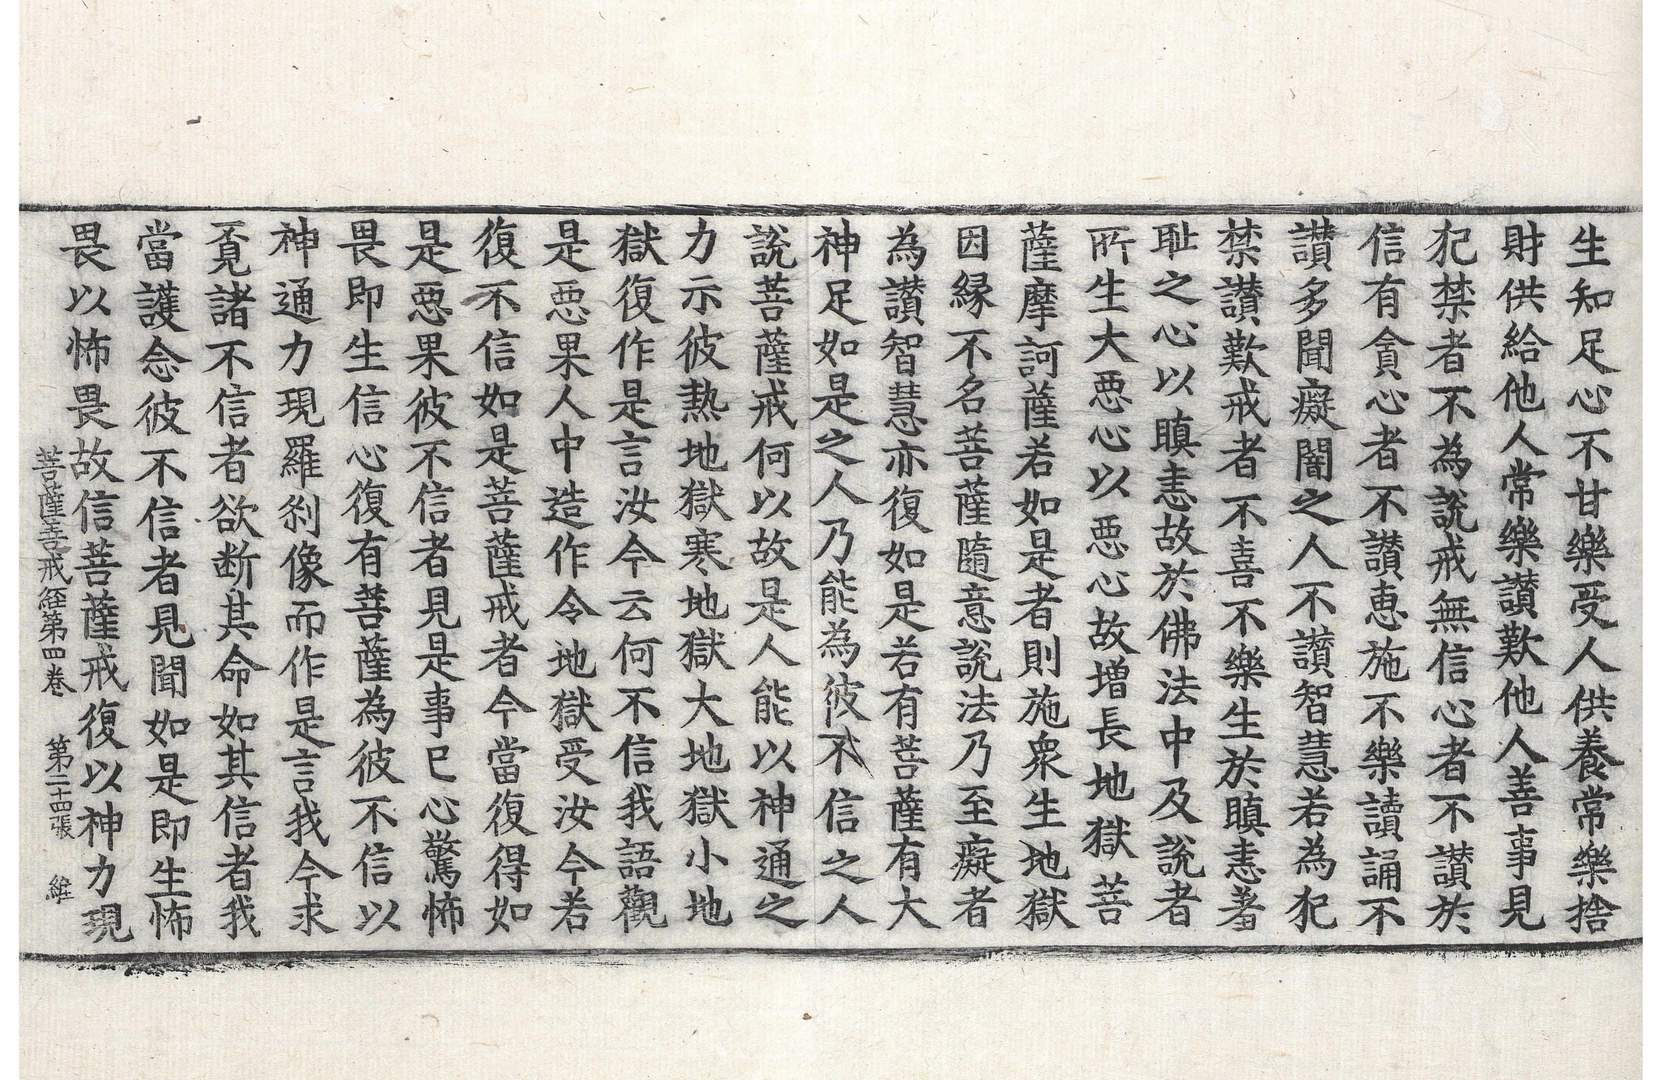 生知足心不甘樂受人供養常樂捨
財供給他人常樂讃歎他人善事見
犯禁者不為說戒無信心者不讃於
信有貪心者不讃恵施不樂讀誦不
讃多聞癡闇之人不讃智慧若為犯
禁讃歎戒者不喜不樂生於瞋恚著
耻之心以瞋恚故於佛法中及說者
所生大惡心以惡心故增長地獄菩
薩摩訶薩若如是者則施衆生地獄
因緣不名菩薩隨意說法乃至癡者
為讃智慧亦復如是若有菩薩有大
神足如是之人乃能為彼不信之人
說菩薩戒何以故是人能以神通之
力示彼熱地獄寒地獄大地獄小地
獄復作是言汝今云何不信我語觀
是惡果人中造作令地獄受汝今若
復不信如是菩薩戒者今當復得如
是惡果彼不信者見是事已心驚怖
畏即生信心復有菩薩為彼不信以
神通力現羅剎像而作是言我今求
覓諸不信者欲断其命如其信者我
當護念彼不信者見聞如是即生怖
畏以怖畏故信菩薩戒復以神力現
菩薩善戒経第四卷 第二十四張 維